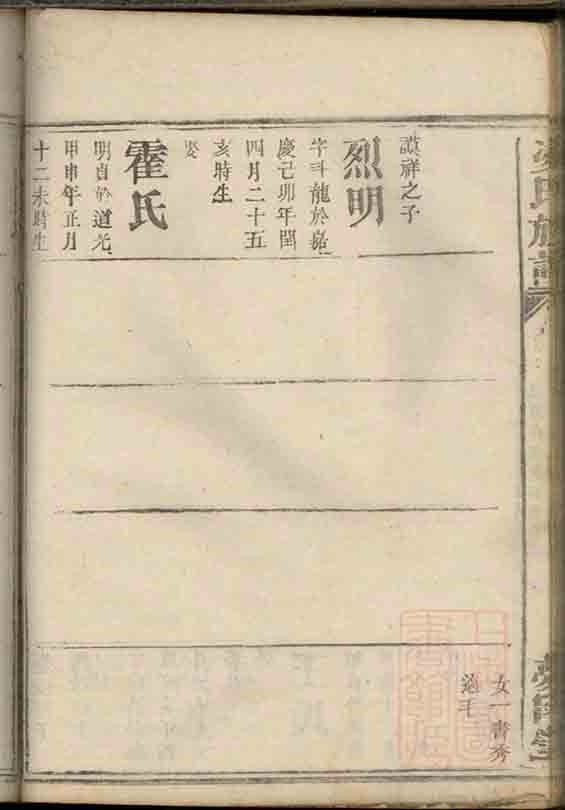 氏族譜
女一書秀
適王
諱祥之子
烈明
字斗龍於嘉
慶己卯年閏
四月二十五
亥時生
娶
霍氏
明貞於道光
甲申年正月
十二未時生